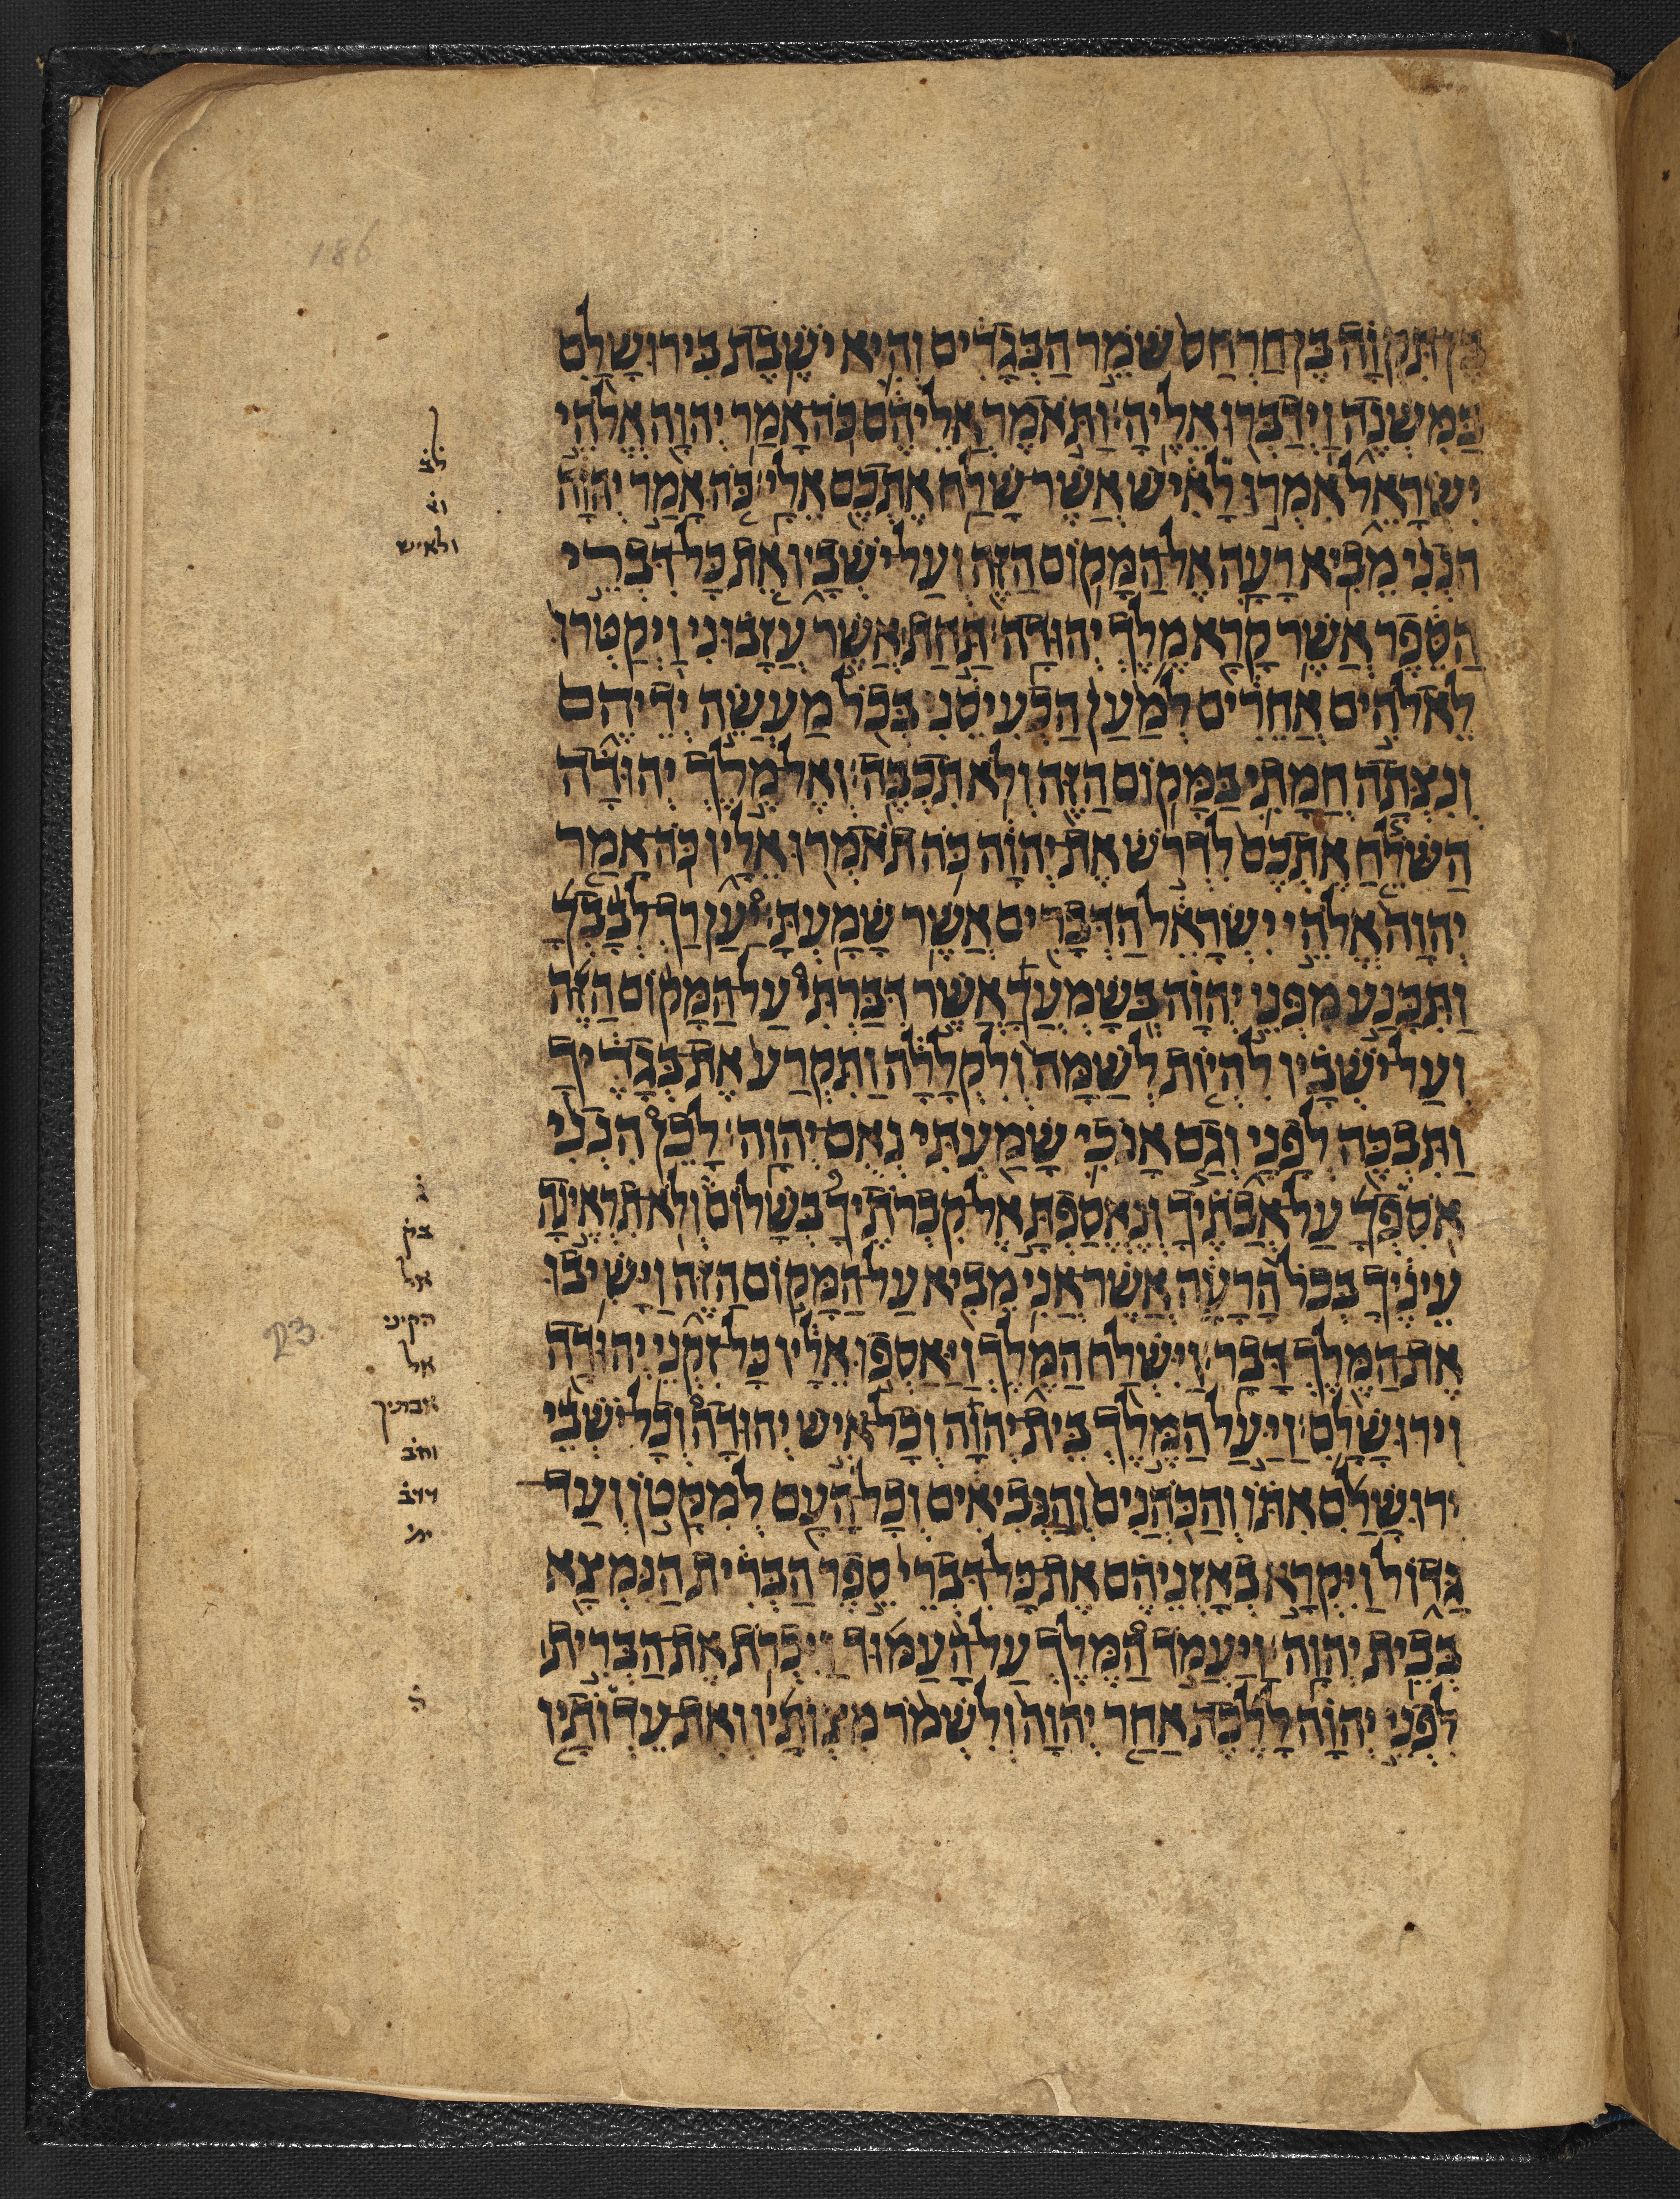 186
בֶּן תִּקְוָה בֶּן חַרְחַס שֹׁמֵר הַבְּגָדִים וְהִיא יֹשֶׁבֶת בִּירוּשָׁלִַם
בַּמִּשְׁנֶה וַיְדַבְּרוּ אֵלֶיהָ׃ וַתֹּאמֶר אֲלֵיהֶם כֹּה אָמַר יְהוָה אֱלֹהֵי
יִשְׂרָאֵל אִמְרוּ לָאִישׁ אֲשֶׁר שָׁלַח אֶתְכֶם אֵלָי׃ כֹּה אָמַר יְהוָה
הִנְנִי מֵבִיא רָעָה אֶל הַמָּקוֹם הַזֶּה וְעַל יֹשְׁבָיו אֵת כָּל דִּבְרֵי
הַסֵּפֶר אֲשֶׁר קָרָא מֶלֶךְ יְהוּדָה׃ תַּחַת אֲשֶׁר עֲזָבוּנִי וַיְקַטְּרוּ
לֵאלֹהִים אֲחֵרִים לְמַעַן הַכְעִיסֵנִי בְּכֹל מַעֲשֵׂה יְדֵיהֶם
וְנִצְּתָה חֲמָתִי בַּמָּקוֹם הַזֶּה וְלֹא תִכְבֶּה׃ וְאֶל מֶלֶךְ יְהוּדָה
הַשֹּׁלֵחַ אֶתְכֶם לִדְרֹשׁ אֶת יְהוָה כֹּה תֹאמְרוּ אֵלָיו כֹּה אָמַר
יְהוָה אֱלֹהֵי יִשְׂרָאֵל הַדְּבָרִים אֲשֶׁר שָׁמָעְתָּ׃ יַעַן רַךְ לְבָבְךָ
וַתִּכָּנַע מִפְּנֵי יְהוָה בְּשָׁמְעֲךָ אֲשֶׁר דִּבַּרְתִּי עַל הַמָּקוֹם הַזֶּה
וְעַל יֹשְׁבָיו לִהְיוֹת לְשַׁמָּה וְלִקְלָלָה וַתִּקְרַע אֶת בְּגָדֶיךָ
וַתִּבְכֶּה לְפָנָי וְגַם אָנֹכִי שָׁמַעְתִּי נְאֻם יְהוָה׃ לָכֵן הִנְנִי
אֹסִפְךָ עַל אֲבֹתֶיךָ וְנֶאֱסַפְתָּ אֶל קִבְרֹתֶיךָ בְּשָׁלוֹם וְלֹא תִרְאֶינָה
עֵינֶיךָ בְּכֹל הָרָעָה אֲשֶׁר אֲנִי מֵבִיא עַל הַמָּקוֹם הַזֶּה וַיָּשִׁיבוּ
אֶת הַמֶּלֶךְ דָּבָר׃ וַיִּשְׁלַח הַמֶּלֶךְ וַיַּאַסְפוּ אֵלָיו כָּל זִקְנֵי יְהוּדָה
וִירוּשָׁלִָם׃ וַיַּעַל הַמֶּלֶךְ בֵּית יְהוָה וְכָל אִישׁ יְהוּדָה וְכָל יֹשְׁבֵי
יְרוּשָׁלִַם אִתּוֹ וְהַכֹּהֲנִים וְהַנְּבִיאִים וְכָל הָעָם לְמִקָּטֹן וְעַד
גָּדוֹל וַיִּקְרָא בְאָזְנֵיהֶם אֶת כָּל דִּבְרֵי סֵפֶר הַבְּרִית הַנִּמְצָא
בְּבֵית יְהוָה׃ וַיַּעֲמֹד הַמֶּלֶךְ עַל הָעַמּוּד וַיִּכְרֹת אֶת הַבְּרִית
לִפְנֵי יְהוָה לָלֶכֶת אַחַר יְהוָה וְלִשְׁמֹר מִצְוֹתָיו וְאֶת עֵדְוֹתָיו
לב
וא
ולאיש
ג
בק
אל
הקיני
אל
אבותיך
וחב
ודב
ית
ל
23